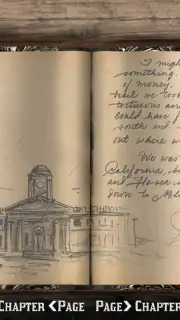 I migh
something.
of money.
trail we took
tortuous an
could have
south and
out where w
We was
California, b
and Hosea
down to
CHAPTER <PAGE PAGE> CHAPTER